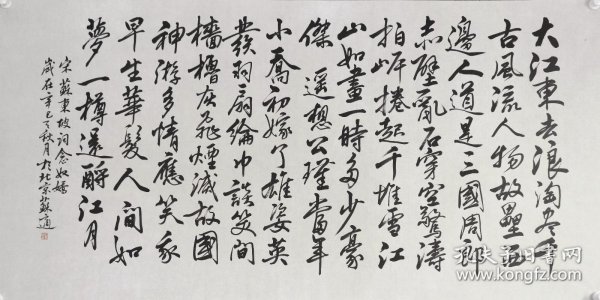 大江東去浪淘盡千
古風流人物故壘西
邊人道是三國周郎
赤壁亂石穿空驚濤
拍岸捲起千堆雪江
山如畫一時多少豪
傑遥想公瑾當年
小喬初嫁了雄姿英
發羽扇綸巾談笑間
檣櫓灰飛煙滅故國
神游多情應笑我
早生華髮人間如
夢一樽還酹江月
宋蘇東坡詞念奴嬌
歲在辛巳之秋月於北京蘇適
孔夫子旧书网
book.kongfz.com